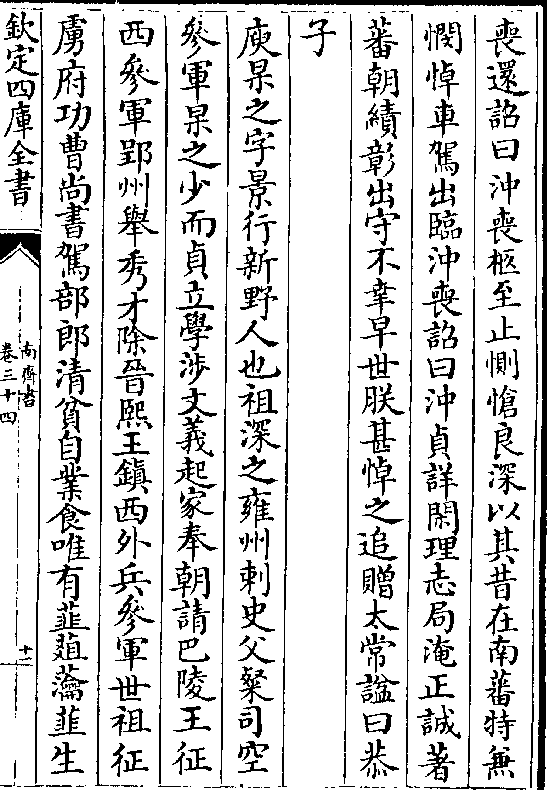 喪還詔曰沖喪柩至止惻愴良深以其昔在南蕃特無
憫悼車駕出臨沖喪詔曰沖貞詳閑理志局淹正誠著
蕃朝績彰出守不幸早世朕甚悼之追贈太常諡曰恭
子
庾杲之字景行新野人也祖深之雍州刺史父粲司空
參軍杲之少而貞立學涉文義起家奉朝請巴陵王征
西參軍郢州舉秀才除晉熙王鎮西外兵參軍世祖征
虜府功曹尚書駕部郎清貧自業食唯有韮葅㵩韮生
欽定四庫全書
南齊書
卷三十四
十二